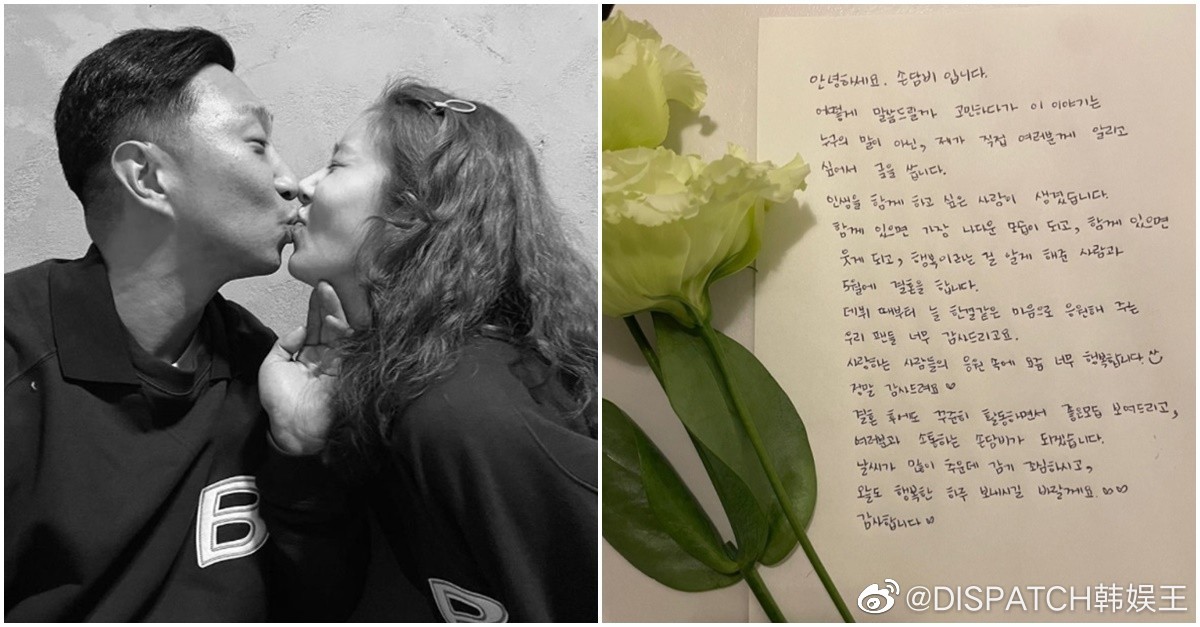 B
안녕하세요. 손담비 입니다.
어떻게 말씀드릴까 고민하다가 이 이야기는
누구의 말이 아닌, 제가 직접 여러분께 알리고
싶어서 글을 씁니다.
인생을 함께 하고 싶은 사람이 생겼습니다.
함께 있으면 가장 나다운 모습이 되고, 함께 있으면
웃게 되고, 행복이라는 걸 알게 해준 사람과
5월에 결혼을 합니다.
데뷔 때부터 늘 한결같은 마음으로 응원해 주는
우리 팬들 너무 감사드리고요.
사랑하는 사람들의 응원 속에 요즘 너무 행복합니다
정말 감사드려요 ♡
결혼 후에도 꾸준히 활동하면서 좋은모습 보여드리고,
여러분과 소통하는 손담비가 되겠습니다.
날씨가 많이 추운데 감기 조심하시고,
오늘도 행복한 하루 보내시길 바랄게요. ♡♡
감사합니다 ♡
@DISPATCH韩娱王